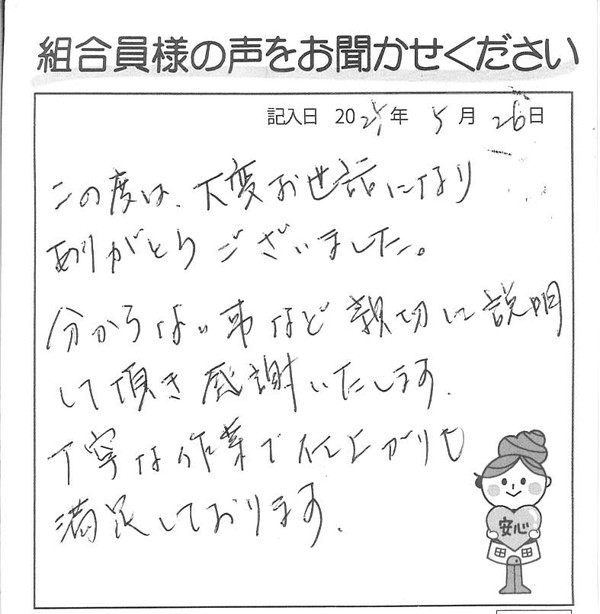 組合員様の声をお聞かせください
記入日 2025年 5月 26日
この度は、大変お世話になり
ありがとうございました。
分からない事など親切に説明
して頂き感謝いたします.
丁寧な作業で仕上がりも
満足しております.
安心